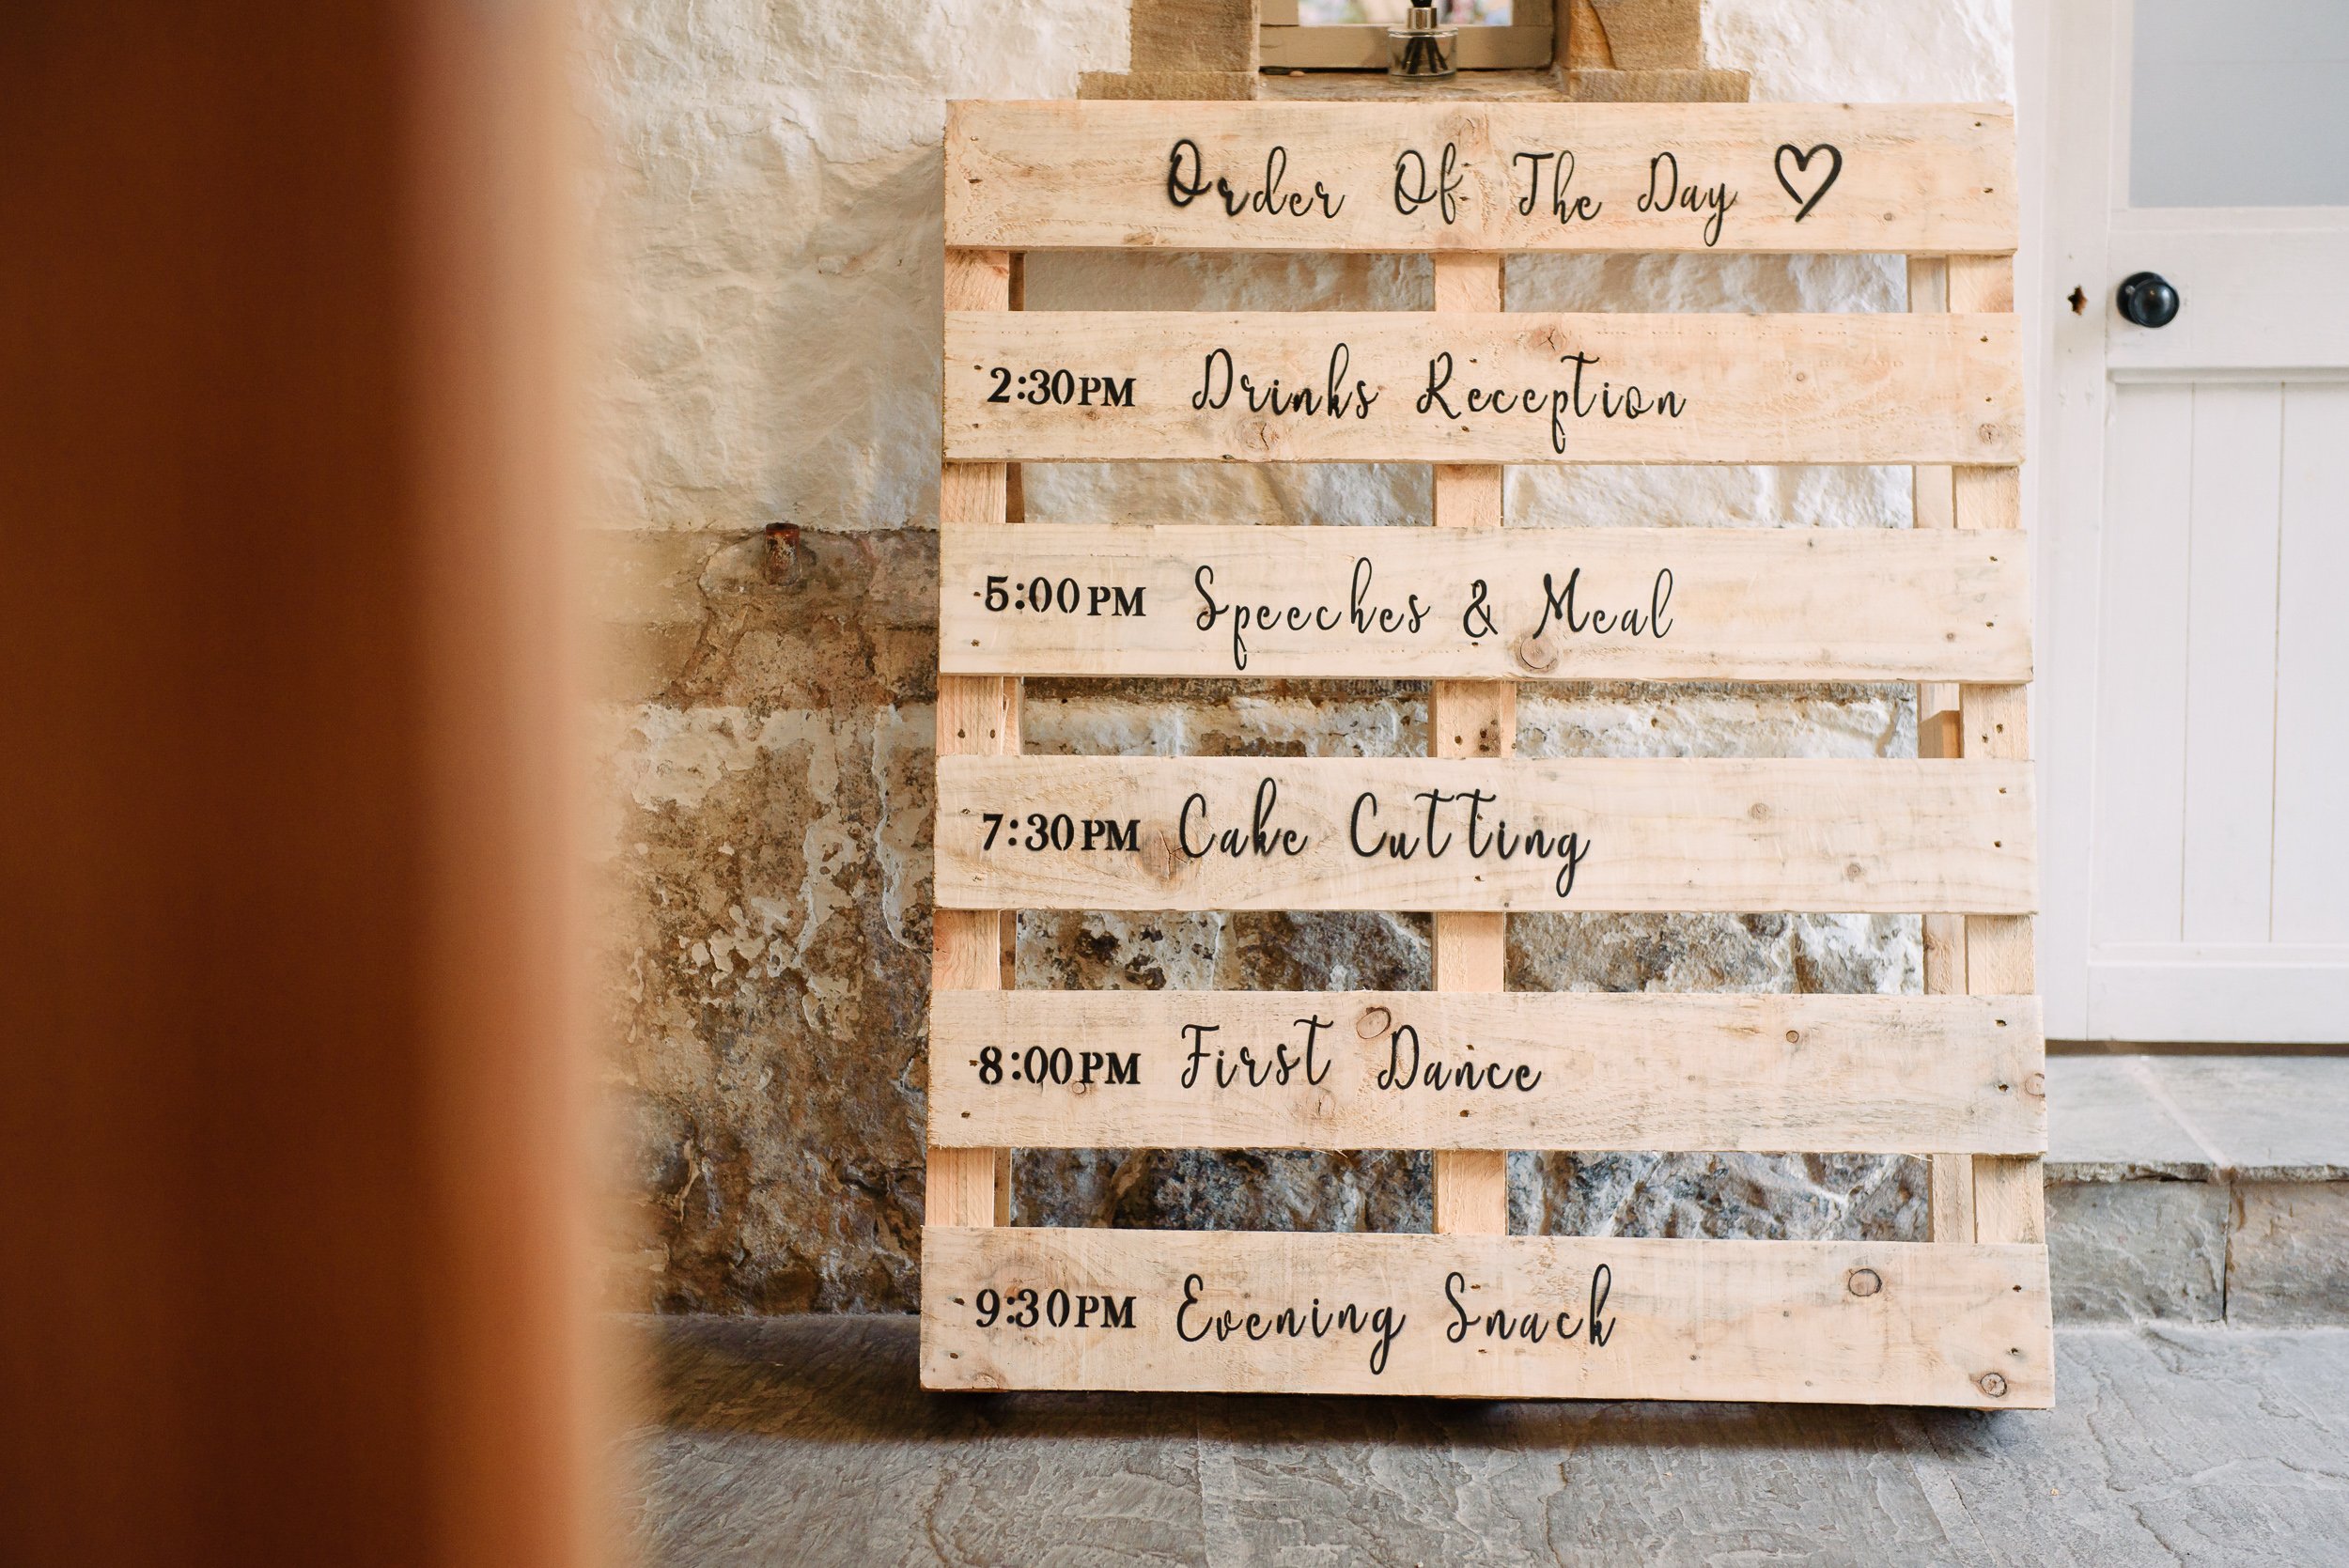 Order Of The Day ♡
2:30PM Drinks Reception
5:00PM Speeches & Meal
7:30PM Cake Cutting
8:00PM First Dance
9:30PM Evening Snack